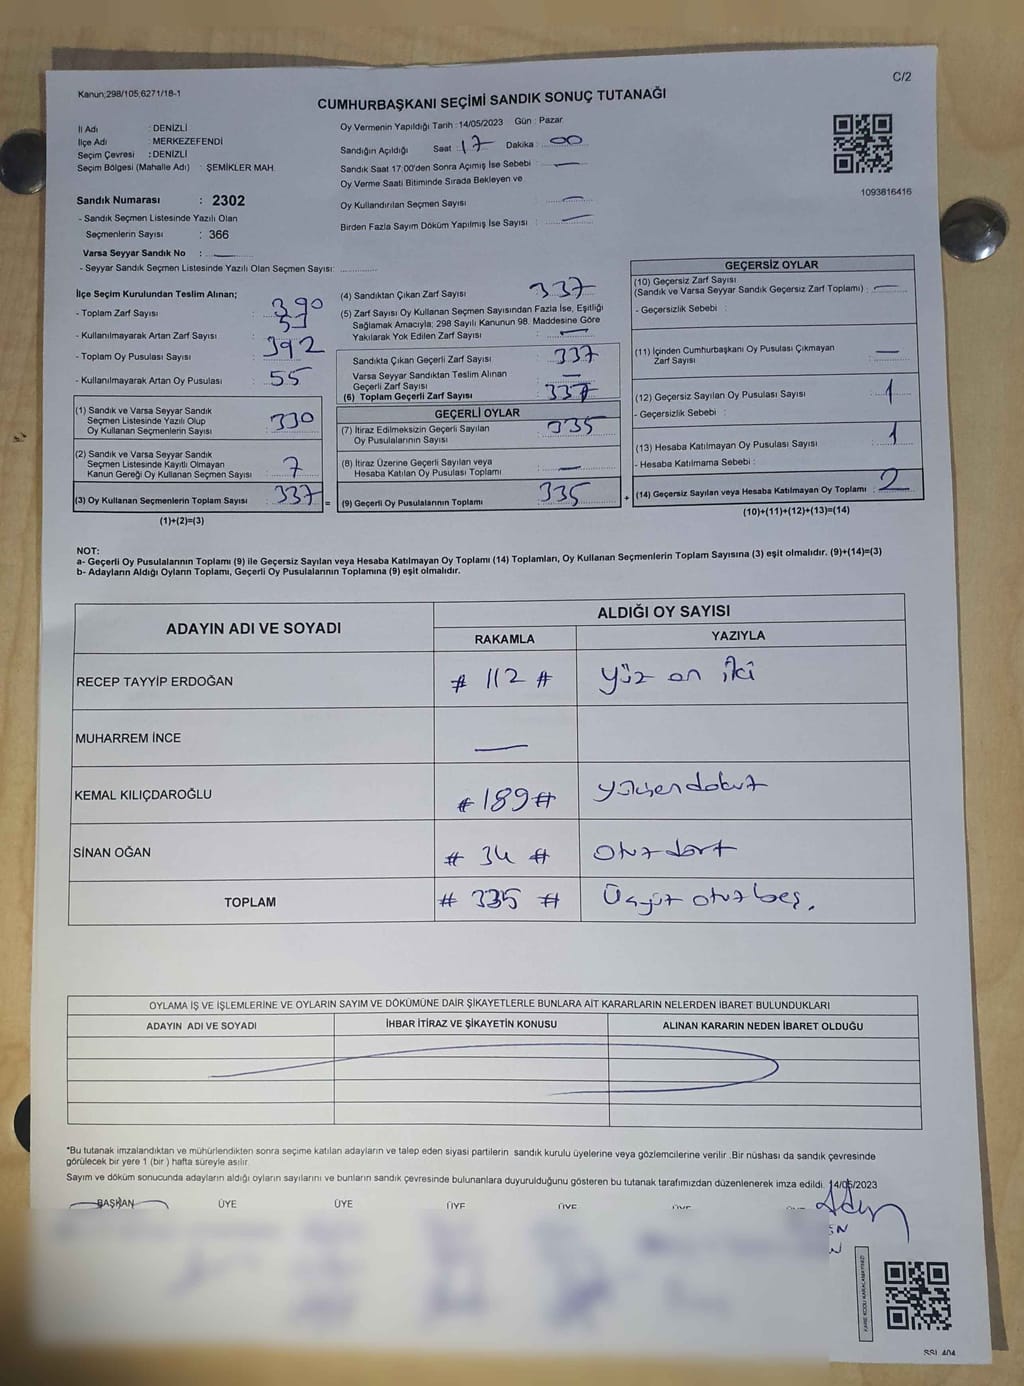 C/2
Kanun:298/105,6271/18-1
CUMHURBAŞKANI SEÇİMİ SANDIK SONUÇ TUTANAĞI
İl Adı : DENİZLİ
İlçe Adı : MERKEZEFENDİ
Seçim Çevresi : DENİZLİ
Seçim Bölgesi (Mahalle Adı) : ŞEMİKLER MAH.
Sandık Numarası : 2302
- Sandık Seçmen Listesinde Yazılı Olan
Seçmenlerin Sayısı : 366
Varsa Seyyar Sandık No :
- Seyyar Sandık Seçmen Listesinde Yazılı Olan Seçmen Sayısı:
Oy Vermenin Yapıldığı Tarih : 14/05/2023 Gün : Pazar
Sandığın Açıldığı Saat : 17 Dakika : 00
Sandık Saat 17:00'den Sonra Açımış İse Sebebi : —
Oy Verme Saati Bitiminde Sırada Bekleyen ve
Oy Kullandırılan Seçmen Sayısı : —
Birden Fazla Sayım Döküm Yapılmış İse Sayısı : —
1093616416
İlçe Seçim Kurulundan Teslim Alınan;
- Toplam Zarf Sayısı : 390
- Kullanılmayarak Artan Zarf Sayısı :
- Toplam Oy Pusulası Sayısı : 392
- Kullanılmayarak Artan Oy Pusulası : 55
(1) Sandık ve Varsa Seyyar Sandık
Seçmen Listesinde Yazılı Olup
Oy Kullanan Seçmenlerin Sayısı : 330
(2) Sandık ve Varsa Seyyar Sandık
Seçmen Listesinde Kayıtlı Olmayan
Kanun Gereği Oy Kullanan Seçmen Sayısı : 7
(3) Oy Kullanan Seçmenlerin Toplam Sayısı : 337
(1)+(2)=(3)
=
(4) Sandıktan Çıkan Zarf Sayısı : 337
(5) Zarf Sayısı Oy Kullanan Seçmen Sayısından Fazla İse, Eşitliği
Sağlamak Amacıyla; 298 Sayılı Kanunun 98. Maddesine Göre
Yakılarak Yok Edilen Zarf Sayısı : —
Sandıkta Çıkan Geçerli Zarf Sayısı : 337
Varsa Seyyar Sandıktan Teslim Alınan
Geçerli Zarf Sayısı : —
(6) Toplam Geçerli Zarf Sayısı : 337
GEÇERLİ OYLAR
(7) İtiraz Edilmeksizin Geçerli Sayılan
Oy Pusulalarının Sayısı : 335
(8) İtiraz Üzerine Geçerli Sayılan veya
Hesaba Katılan Oy Pusulası Toplamı : —
(9) Geçerli Oy Pusulalarının Toplamı : 335
+
GEÇERSİZ OYLAR
(10) Geçersiz Zarf Sayısı
(Sandık ve Varsa Seyyar Sandık Geçersiz Zarf Toplamı) : —
- Geçersizlik Sebebi :
(11) İçinden Cumhurbaşkanı Oy Pusulası Çıkmayan
Zarf Sayısı : —
(12) Geçersiz Sayılan Oy Pusulası Sayısı : 1
- Geçersizlik Sebebi :
(13) Hesaba Katılmayan Oy Pusulası Sayısı : 1
- Hesaba Katılmama Sebebi :
(14) Geçersiz Sayılan veya Hesaba Katılmayan Oy Toplamı : 2
(10)+(11)+(12)+(13)=(14)
NOT:
a- Geçerli Oy Pusulalarının Toplamı (9) ile Geçersiz Sayılan veya Hesaba Katılmayan Oy Toplamı (14) Toplamları, Oy Kullanan Seçmenlerin Toplam Sayısına (3) eşit olmalıdır. (9)+(14)=(3)
b- Adayların Aldığı Oyların Toplamı, Geçerli Oy Pusulalarının Toplamına (9) eşit olmalıdır.
ADAYIN ADI VE SOYADI ALDIĞI OY SAYISI
RAKAMLA YAZIYLA
RECEP TAYYİP ERDOĞAN # 112 # Yüz on iki
MUHARREM İNCE —
KEMAL KILIÇDAROĞLU # 189 #
SİNAN OĞAN # 34 # Otuz dört
TOPLAM # 335 # Üçyüz otuz beş.
OYLAMA İŞ VE İŞLEMLERİNE VE OYLARIN SAYIM VE DÖKÜMÜNE DAİR ŞİKAYETLERLE BUNLARA AİT KARARLARIN NELERDEN İBARET BULUNDUKLARI
ADAYIN ADI VE SOYADI İHBAR İTİRAZ VE ŞİKAYETİN KONUSU ALINAN KARARIN NEDEN İBARET OLDUĞU
*Bu tutanak imzalandıktan ve mühürlendikten sonra seçime katılan adayların ve talep eden siyasi partilerin sandık kurulu üyelerine veya gözlemcilerine verilir .Bir nüshası da sandık çevresinde
görülecek bir yere 1 (bir ) hafta süreyle asılır.
Sayım ve döküm sonucunda adayların aldığı oyların sayılarını ve bunların sandık çevresinde bulunanlara duyurulduğunu gösteren bu tutanak tarafımızdan düzenlenerek imza edildi. 14/05/2023
BAŞKAN ÜYE ÜYE ÜYE ÜYE
KARE KODU KARALAMAYINIZ!